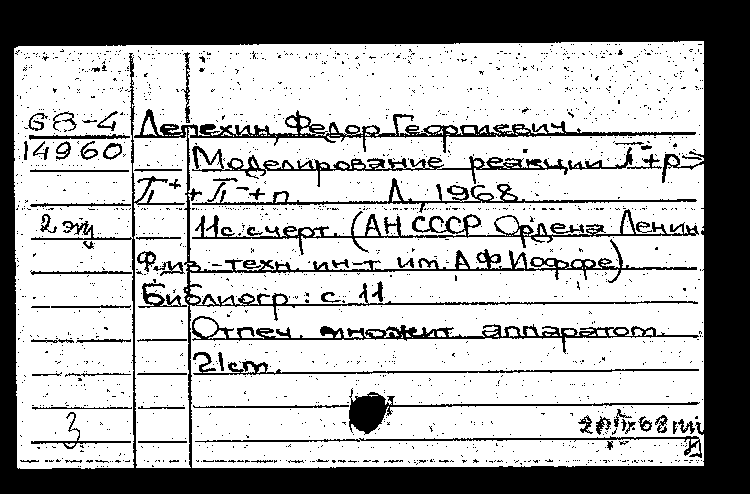 68-4 Лепехин, Федор Георгиевич.
14960 Моделирование реакции π⁻+p→
π⁺+π⁻+n. Л., 1968.
2 экз 11с. с черт. (АН СССР Ордена Ленин.
Физ.-техн. ин-т им. А.Ф.Иоффе).
Библиогр.: с. 11.
Отпеч. множит. аппаратом.
21см.
3